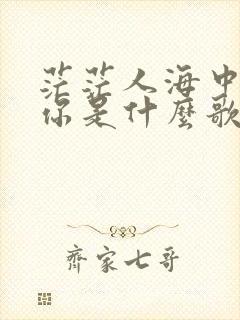 茫茫人海中
你是什麼歌
齊家七哥